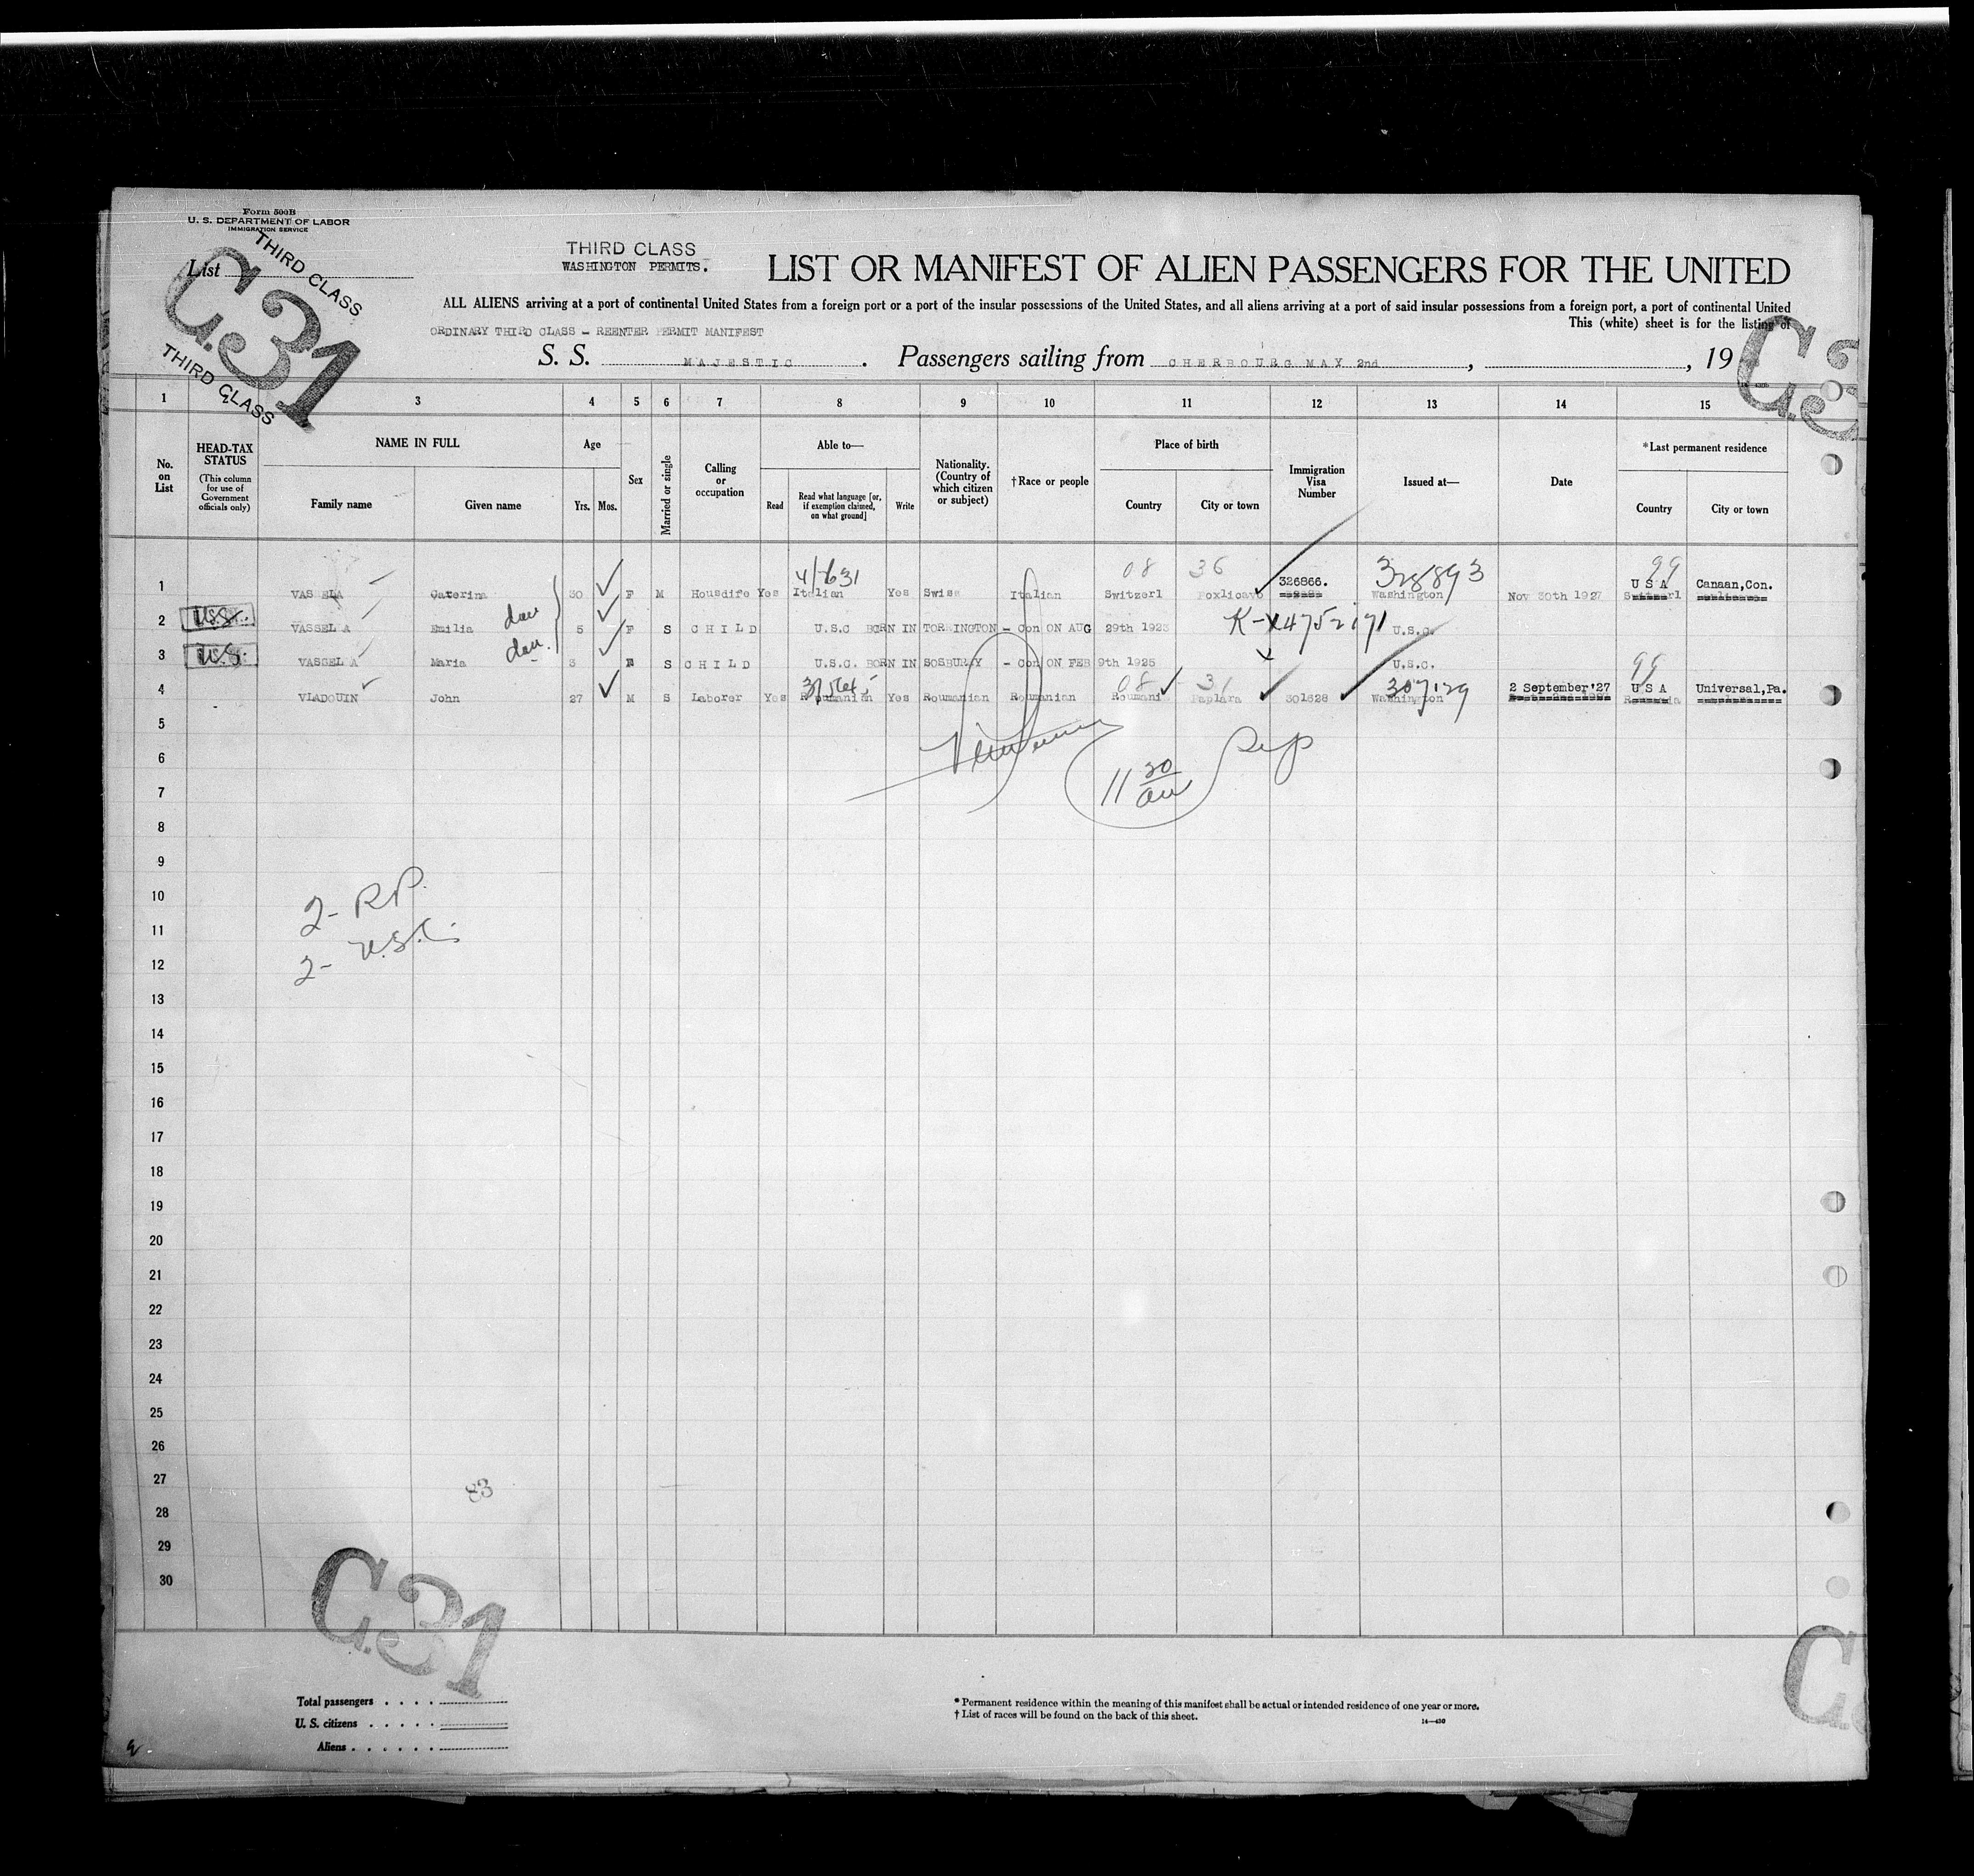 Form 500B
U. S. DEPARTMENT OF LABOR
IMMIGRATION SERVICE
List
THIRD CLASS
C.31
THIRD CLASS
THIRD CLASS
WASHINGTON PERMITS.
LIST OR MANIFEST OF ALIEN PASSENGERS FOR THE UNITED
ALL ALIENS arriving at a port of continental United States from a foreign port or a port of the insular possessions of the United States, and all aliens arriving at a port of said insular possessions from a foreign port, a port of continental United
This (white) sheet is for the listing of
ORDINARY THIRD CLASS - REENTER PERMIT MANIFEST
S. S. MAJESTIC. Passengers sailing from CHERBOURG MAY 2nd, , 19
1 2 3 4 5 6 7 8 9 10 11 12 13 14 15
No. on List
HEAD-TAX STATUS
(This column for use of Government officials only)
NAME IN FULL
Family name Given name
Age
Yrs. Mos.
Sex
Married or single
Calling or occupation
Able to—
Read
Read what language [or, if exemption claimed, on what ground]
Write
Nationality. (Country of which citizen or subject)
†Race or people
Place of birth
Country City or town
Immigration Visa Number
Issued at—
Date
*Last permanent residence
Country City or town
08 36 328893 99
1 VASSELA Caterina 30 F M Housdife Yes Italian Yes Swiss Italian Switzerl 326866. Washington Nov 30th 1927 U S A Canaan,Con.
2 U.S.C. VASSELA Emilia dau 5 F S CHILD U.S.C BORN IN TORRINGTON - Con ON AUG 29th 1923 U.S.C.
3 U.S. VASSELA Maria dau. 3 S CHILD U.S.C. BORN IN SOSBURAY - Con ON FEB 9th 1925 U.S.C.
08 31 307129 99
4 VLADOUIN John 27 M S Laborer Yes Roumanian Yes Roumanian Roumanian Roumani Paplara 301628 Washington 2 September '27 U S A Universal,Pa.
5
6
7
11 20
8
9
10
2- RP.
11
2- U.S.C.
12
13
14
15
16
17
18
19
20
21
22
23
24
25
26
27
83
28
29
30
C.31
Total passengers
U. S. citizens
Aliens
* Permanent residence within the meaning of this manifest shall be actual or intended residence of one year or more.
† List of races will be found on the back of this sheet.
14—430